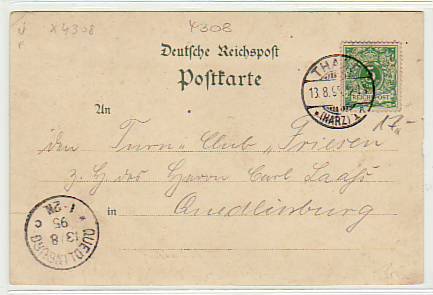 X4308
4308
Deutsche Reichspost
Postkarte
THALE
13.8.95
*(HARZ)
REICHSPOST
An
den Turn-Club "Friesen
z. H des Herrn Carl Laafs
in Quedlinburg
QUEDLINBURG
13.8
95
1-2N.
c